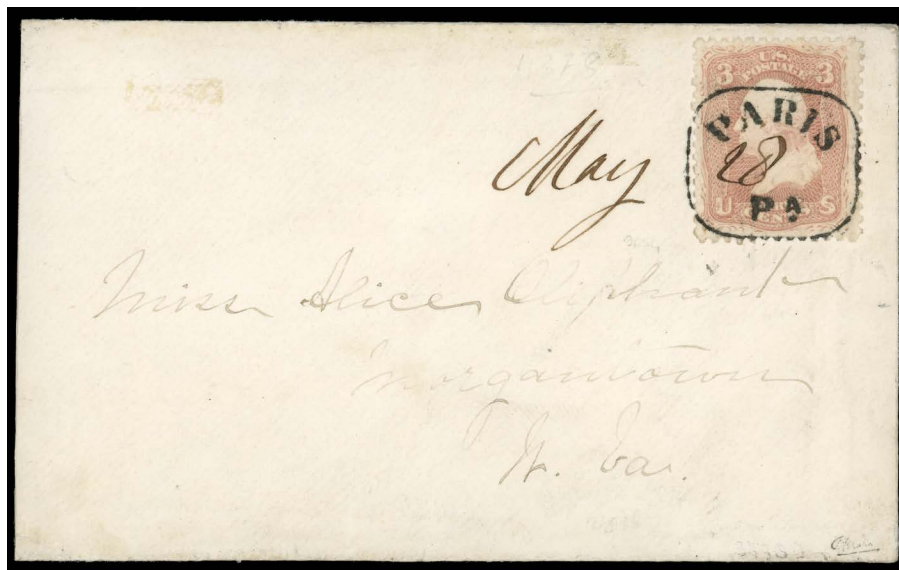 U.S.
POSTAGE
3 3
PARIS
May 28
PA
U S
CENTS
Miss Alice Oliphant
Morgantown
W. Va.